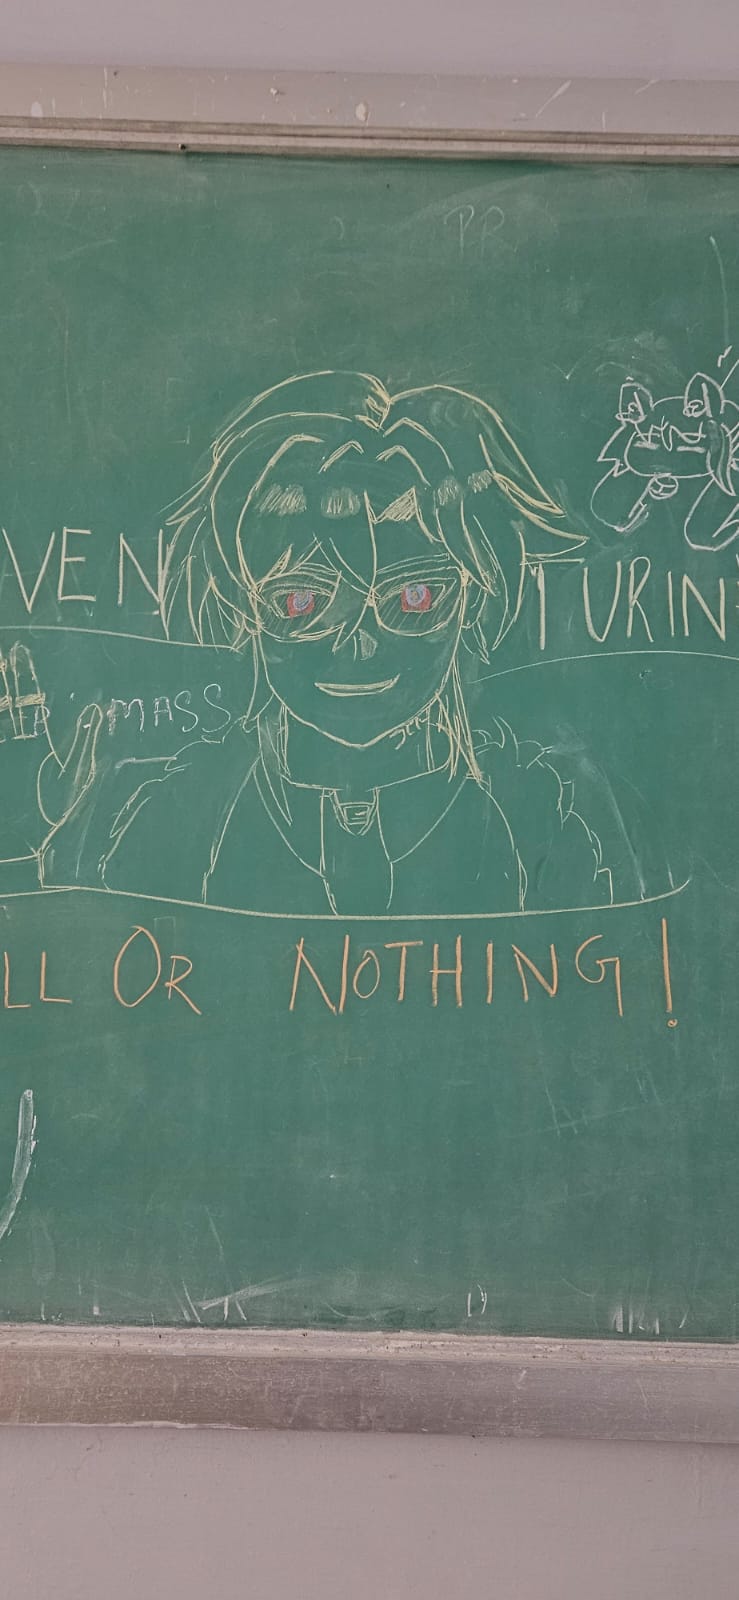 PR
VEN TURIN
MASS
LL OR NOTHING!